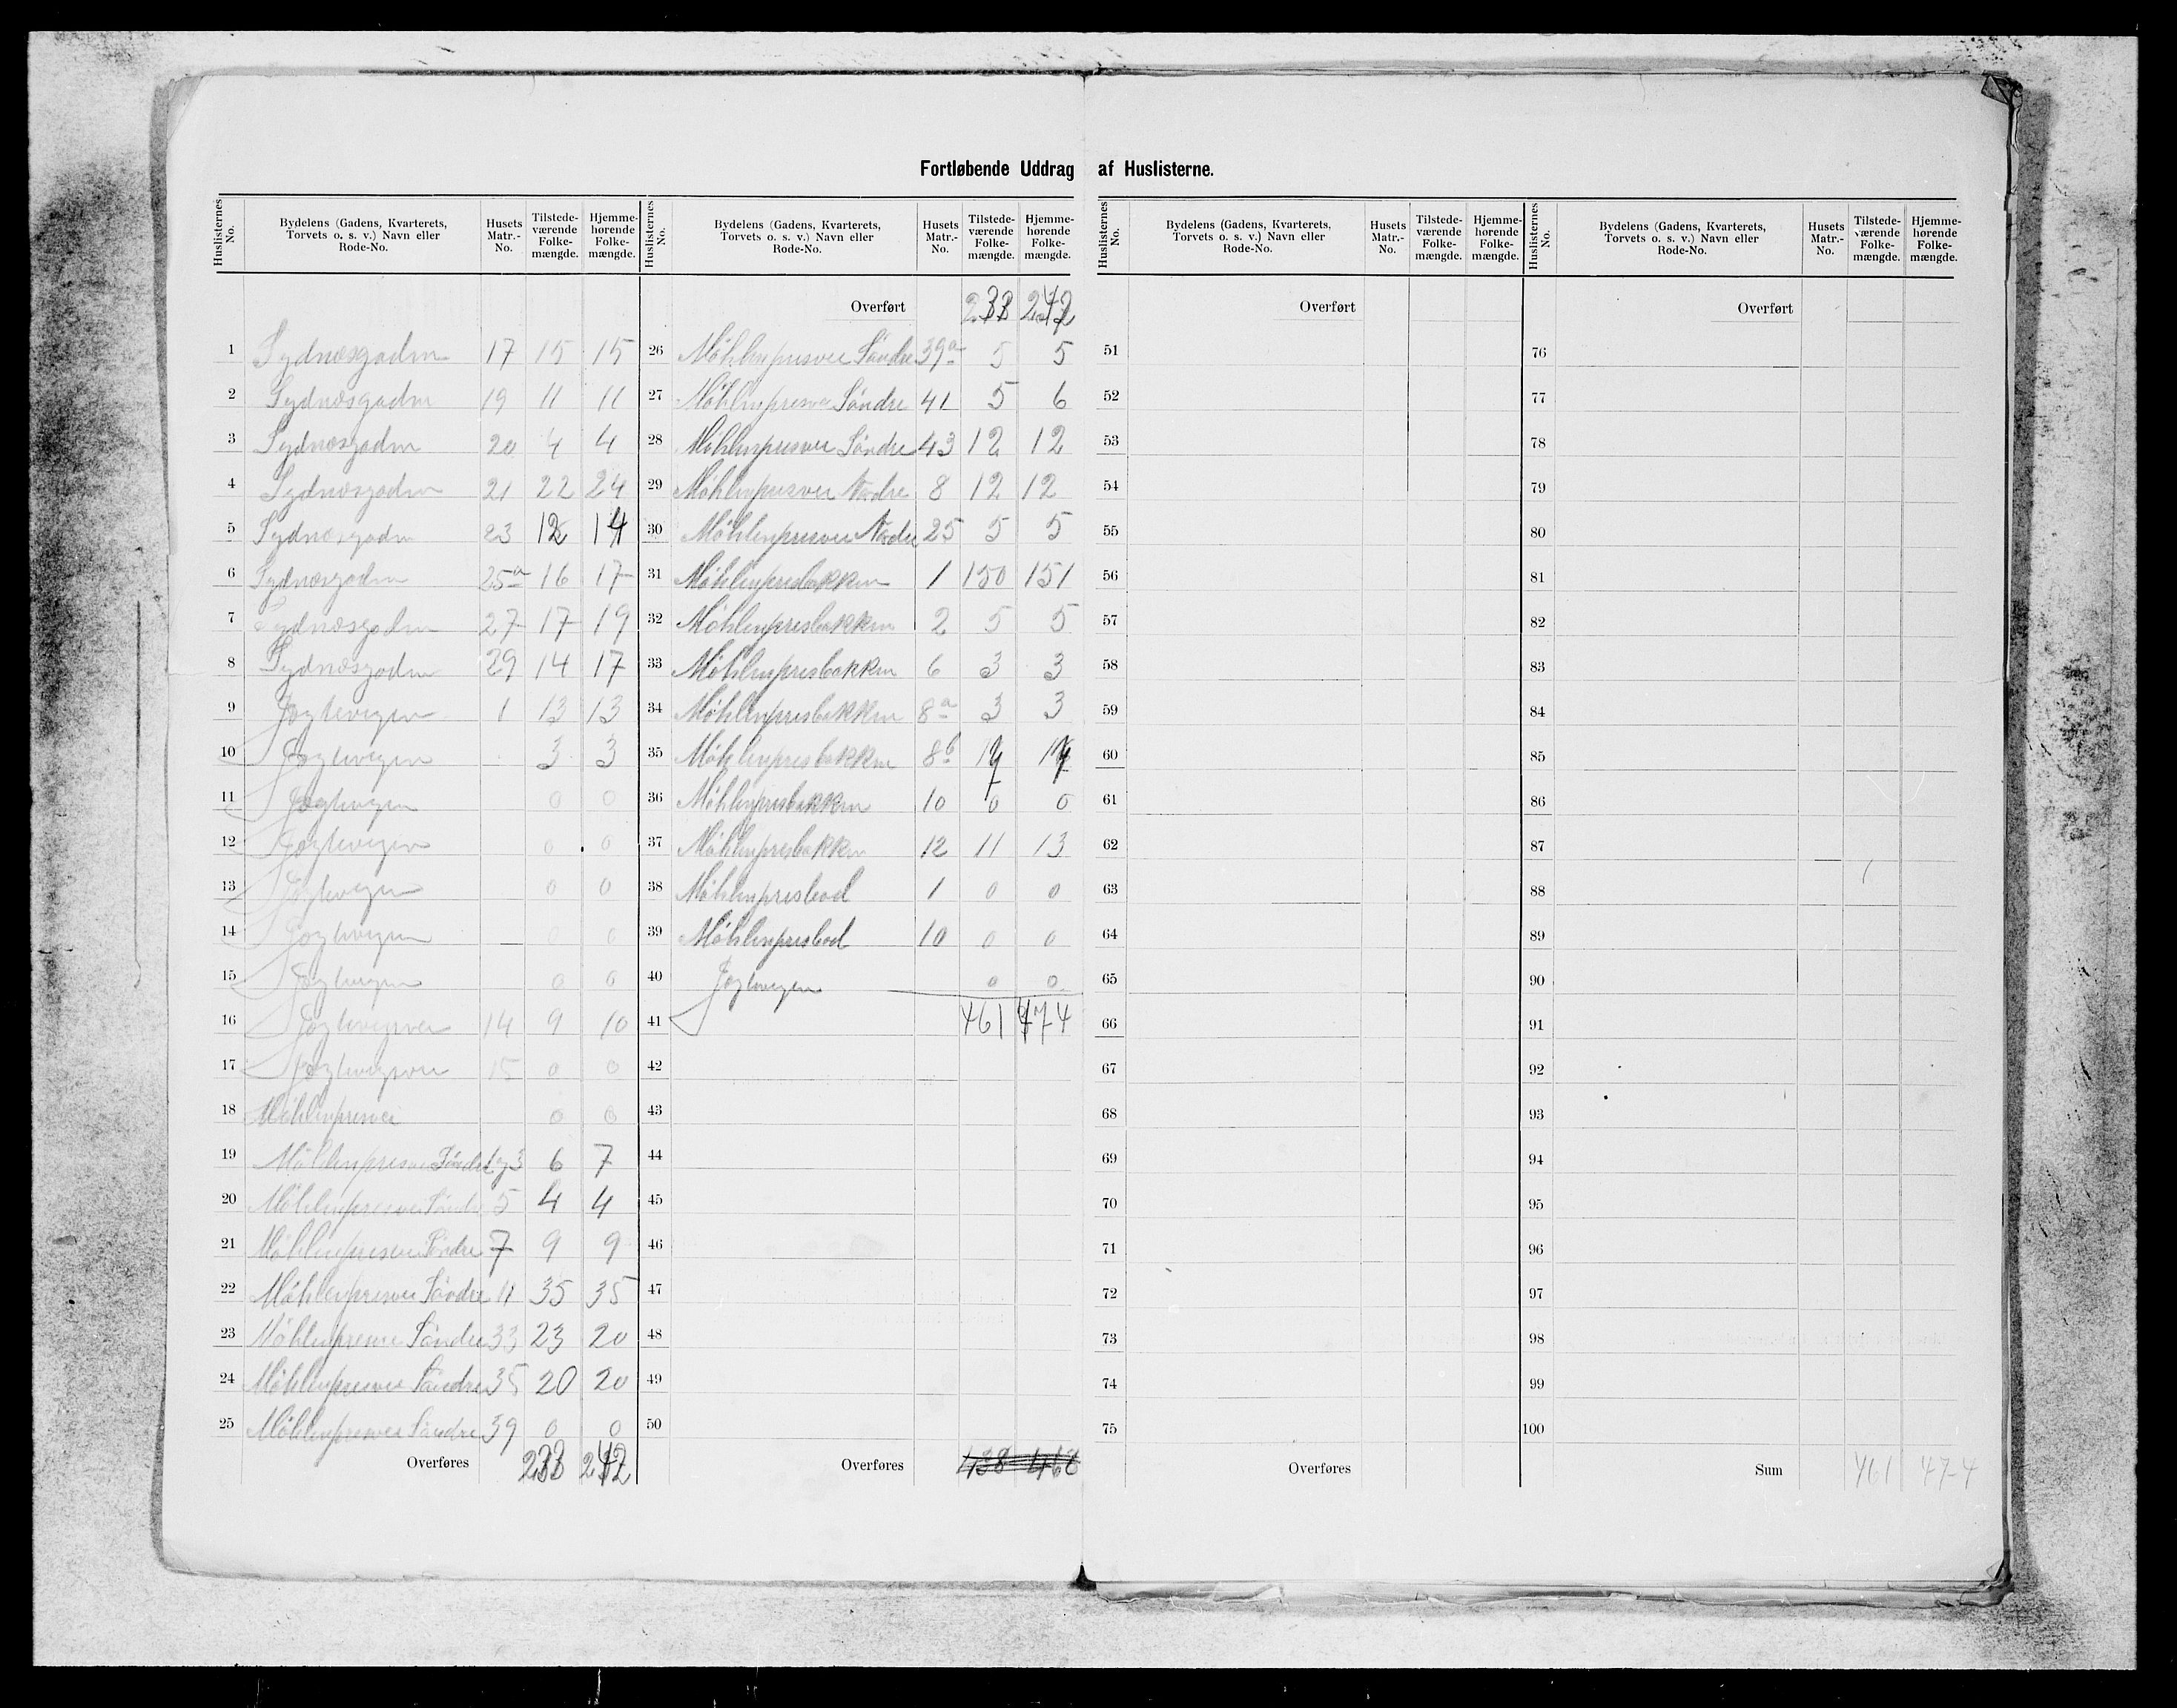 Fortløbende Uddrag af Huslisterne.
Huslisternes No. Bydelens (Gadens, Kvarterets, Torvets o. s. v.) Navn eller Rode-No. Husets Matr.-No. Tilstede-værende Folke-mængde. Hjemme-hørende Folke-mængde.
1 Sydnæsgaden 17 15 15
2 Sydnæsgaden 19 11 11
3 Sydnæsgaden 20 4 4
4 Sydnæsgaden 21 22 24
5 Sydnæsgaden 23 12 14
6 Sydnæsgaden 25a 16 17
7 Sydnæsgaden 27 17 19
8 Sydnæsgaden 29 14 17
9 Jægtevigen 1 13 13
10 Jægtevigen 3 3
11 Jægtevigen 0 0
12 Jægtevigen 0 0
13 Jægtevigen 0 0
14 Jægtevigen 0 0
15 Jægtevigen 0 0
16 Jægtevigsvei 14 9 10
17 Jægtevigsvei 15 0 0
18 Möhlenprisvei 0 0
19 Möhlenprisvei Söndre 1 og 3 6 7
20 Möhlenprisvei Söndre 5 4 4
21 Möhlenprisvei Söndre 7 9 9
22 Möhlenprisvei Söndre 11 35 35
23 Möhlenprisvei Söndre 33 23 20
24 Möhlenprisvei Söndre 35 20 20
25 Möhlenprisvei Söndre 39 0 0
Overføres 233 242
Huslisternes No. Bydelens (Gadens, Kvarterets, Torvets o. s. v.) Navn eller Rode-No. Husets Matr.-No. Tilstede-værende Folke-mængde. Hjemme-hørende Folke-mængde.
Overført 233 242
26 Möhlenprisvei Söndre 39a 5 5
27 Möhlenprisvei Söndre 41 5 6
28 Möhlenprisvei Söndre 43 12 12
29 Möhlenprisvei Nordre 8 12 12
30 Möhlenprisvei Nordre 25 5 5
31 Möhlenprisbakken 1 150 151
32 Möhlenprisbakken 2 5 5
33 Möhlenprisbakken 6 3 3
34 Möhlenprisbakken 8a 3 3
35 Möhlenprisbakken 8b 17 17
36 Möhlenprisbakken 10 0 0
37 Möhlenprisbakken 12 11 13
38 Möhlenprisbod 1 0 0
39 Möhlenprisbod 10 0 0
40 Jægtevigen 0 0
41 461 474
42
43
44
45
46
47
48
49
50
Overføres 438 468
Huslisternes No. Bydelens (Gadens, Kvarterets, Torvets o. s. v.) Navn eller Rode-No. Husets Matr.-No. Tilstede-værende Folke-mængde. Hjemme-hørende Folke-mængde.
Overført
51
52
53
54
55
56
57
58
59
60
61
62
63
64
65
66
67
68
69
70
71
72
73
74
75
Overføres
Huslisternes No. Bydelens (Gadens, Kvarterets, Torvets o. s. v.) Navn eller Rode-No. Husets Matr.-No. Tilstede-værende Folke-mængde. Hjemme-hørende Folke-mængde.
Overført
76
77
78
79
80
81
82
83
84
85
86
87
88
89
90
91
92
93
94
95
96
97
98
99
100
Sum 461 474